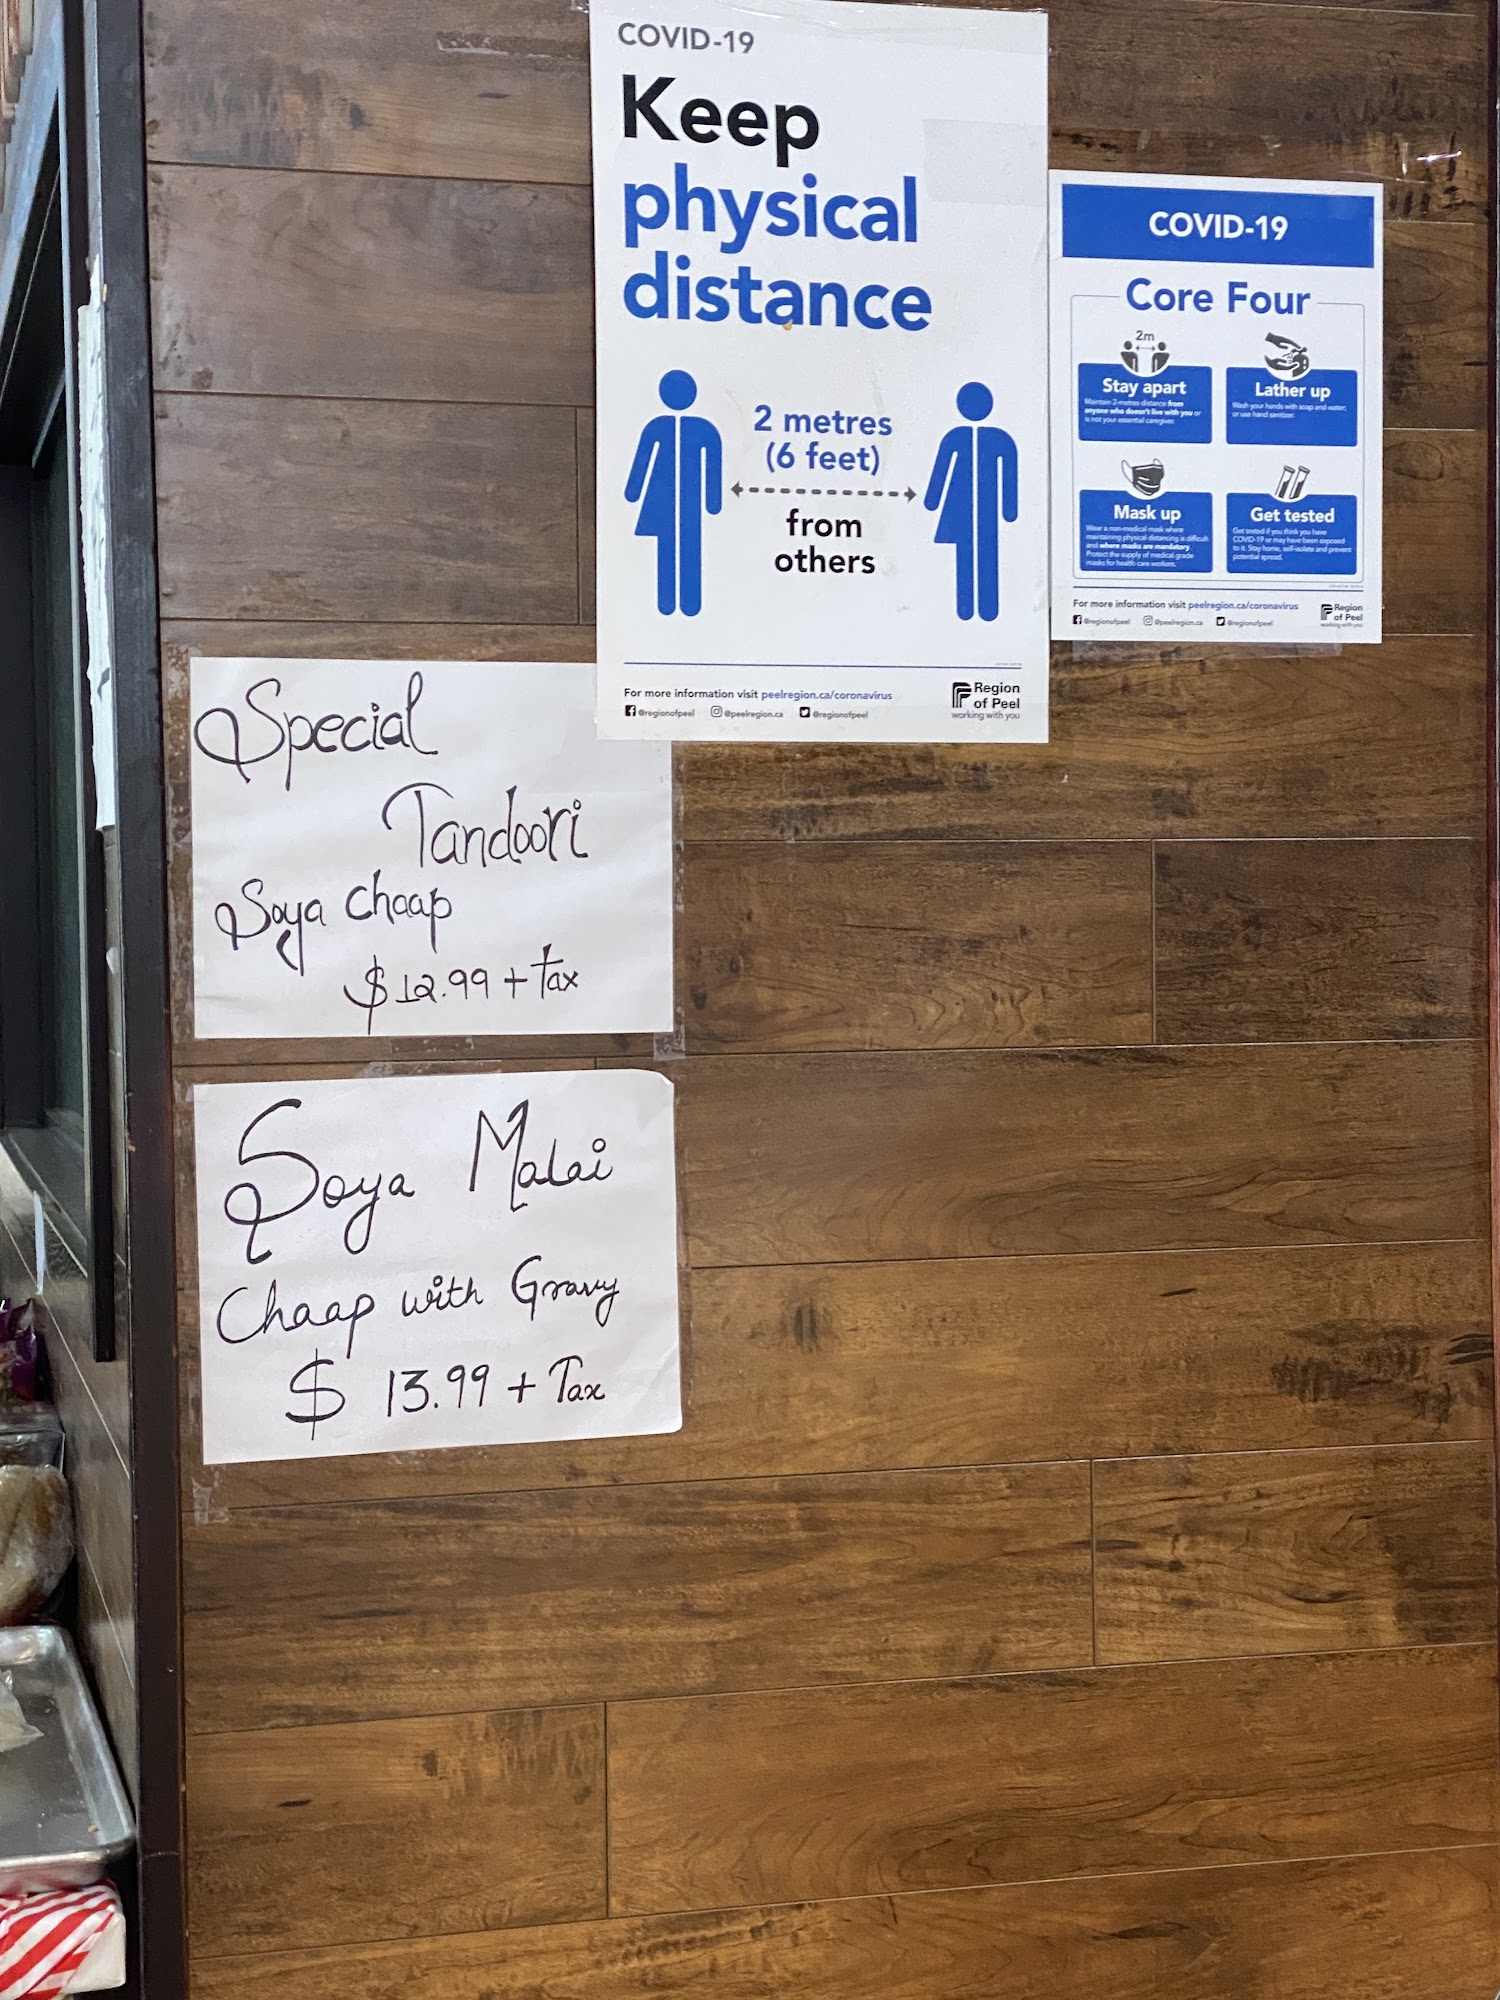 COVID-19
Keep
physical
distance
2 metres
(6 feet)
from
others
For more information visit peelregion.ca/coronavirus
@regionofpeel @peelregion.ca @regionofpeel
Region
of Peel
working with you
COVID-19
Core Four
2m
Stay apart
Maintain 2-metres distance from
anyone who doesn't live with you or
is not your essential caregiver.
Lather up
Wash your hands with soap and water,
or use hand sanitizer.
Mask up
Wear a non-medical mask where
maintaining physical distancing is difficult
and where masks are mandatory.
Protect the supply of medical grade
masks for health care workers.
Get tested
Get tested if you think you have
COVID-19 or may have been exposed
to it. Stay home, self-isolate and prevent
potential spread.
For more information visit peelregion.ca/coronavirus
@regionofpeel @peelregion.ca @regionofpeel
Region
of Peel
working with you
Special
Tandoori
Soya Chaap
$12.99 + Tax
Soya Malai
Chaap with Gravy
$ 13.99 + Tax